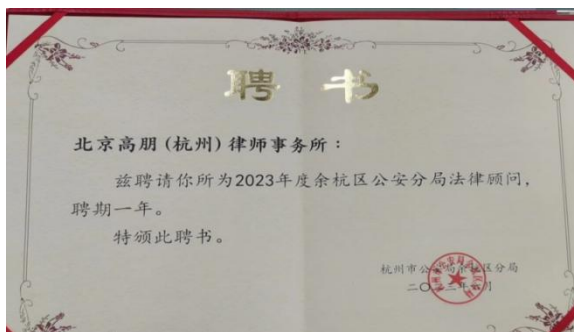 聘书
北京高朋(杭州)律师事务所：
兹聘请你所为2023年度余杭区公安分局法律顾问，
聘期一年。
特颁此聘书。
杭州市公安局余杭区分局
二〇二三年 月